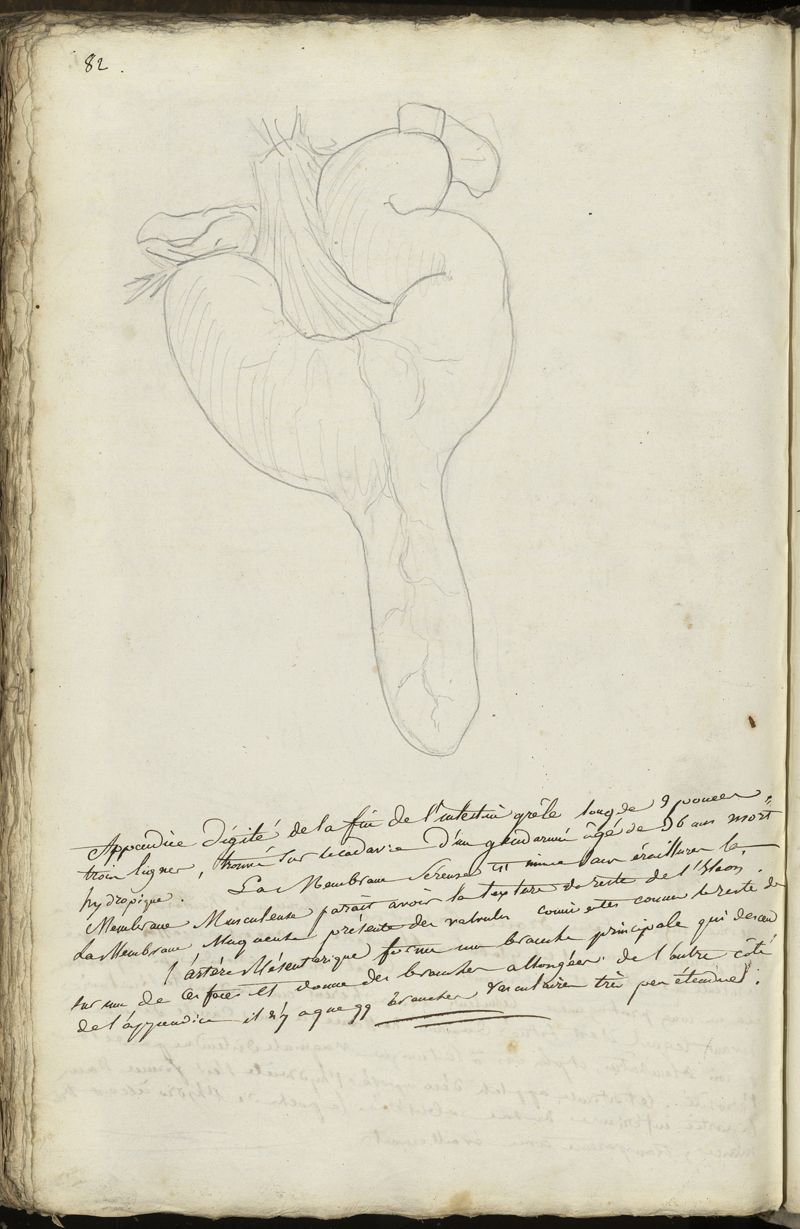 82.
Appendice digité de la fin de l'intestin grêle long de 9 pouces
trois lignes, trouvé sur le cadavre d'un gendarme âgé de 36 ans mort
hydropique. La Membrane Sereuse est mince sans éraillures la
Membrane Musculeuse parait avoir la texture du reste de l'Iléon.
La Membrane Muqueuse présente des valvules conniventes comme le reste de
l'artère Mésentérique forme une branche principale qui descend
sur une de ces faces et donne des branches allongées. de l'autre côté
de l'appendice il n'y a que qq branches vasculaires très peu étendues.